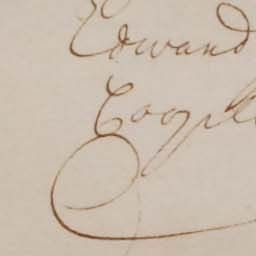 Edward
Cooper